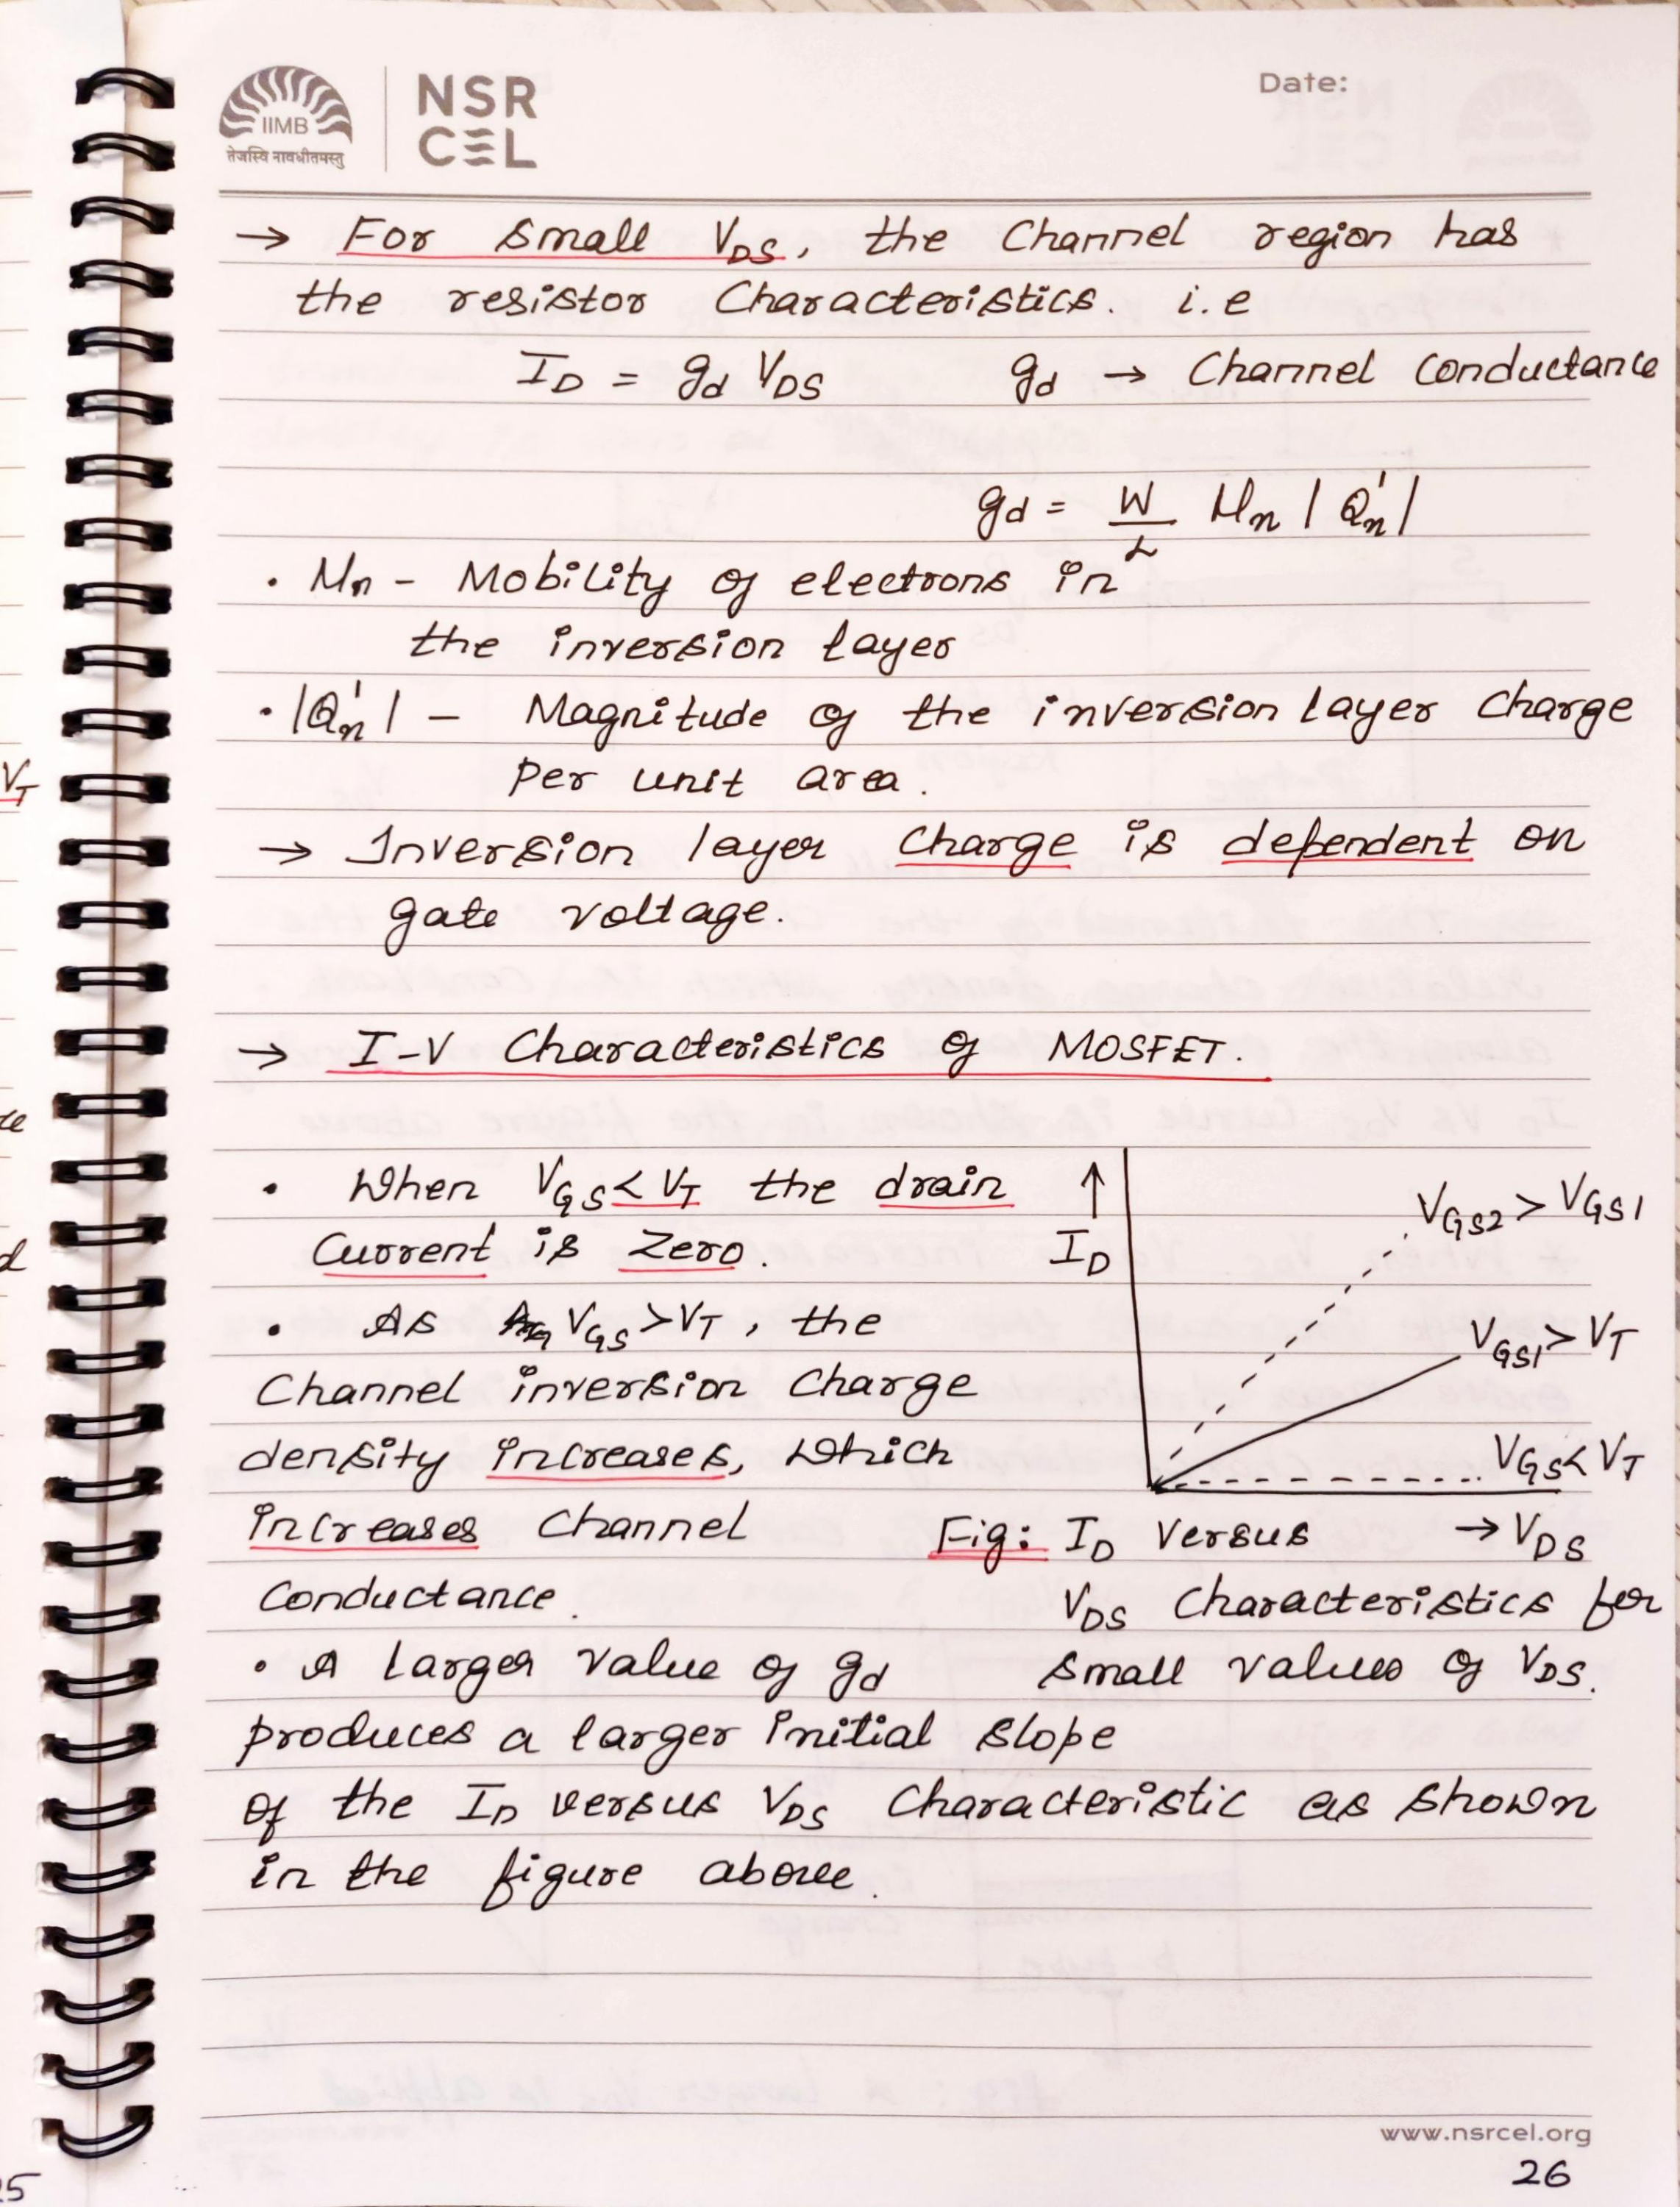 IIMB
तेजस्वि नावधीतमस्तु
NSR
CEL
Date:
→ For small V_DS, the Channel region has
the resistor Characteristics. i.e
I_D = g_d V_DS    g_d → Channel Conductance
g_d = W/L μ_n |Q'_n|
· μ_n - Mobility of electrons in
the inversion layer
· |Q'_n| - Magnitude of the inversion layer Charge
per unit area.
→ Inversion layer Charge is dependent on
gate voltage.
→ I-V Characteristics of MOSFET.
· When V_GS < V_T the drain
Current is Zero.
· As V_GS > V_T, the
Channel inversion Charge
density increases, which
increases Channel
Conductance.
· A larger value of g_d
produces a larger initial slope
of the I_D versus V_DS Characteristic as shown
in the figure above.
↑
I_D
V_GS2 > V_GS1
V_GS1 > V_T
V_GS < V_T
→ V_DS
Fig: I_D versus
V_DS Characteristics for
small values of V_DS.
www.nsrcel.org
26
V_T
25